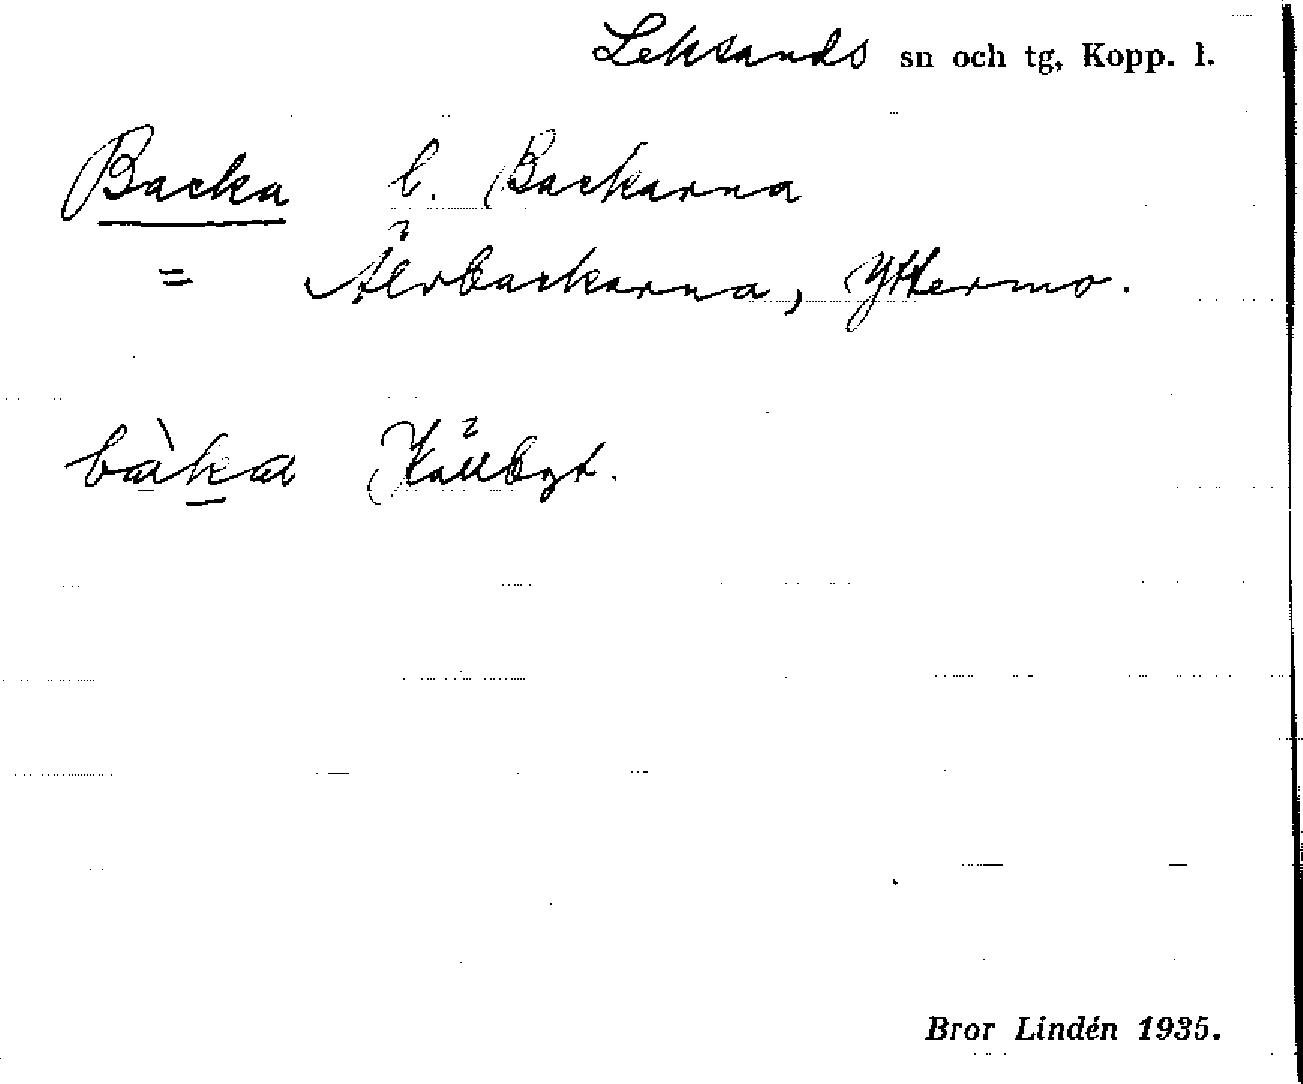 Leksands sn och tg, Kopp. l.
Backa l. Backarna
= Ålrbackarna, Yttermo.
bàka Källbyt.
Bror Lindén 1935.